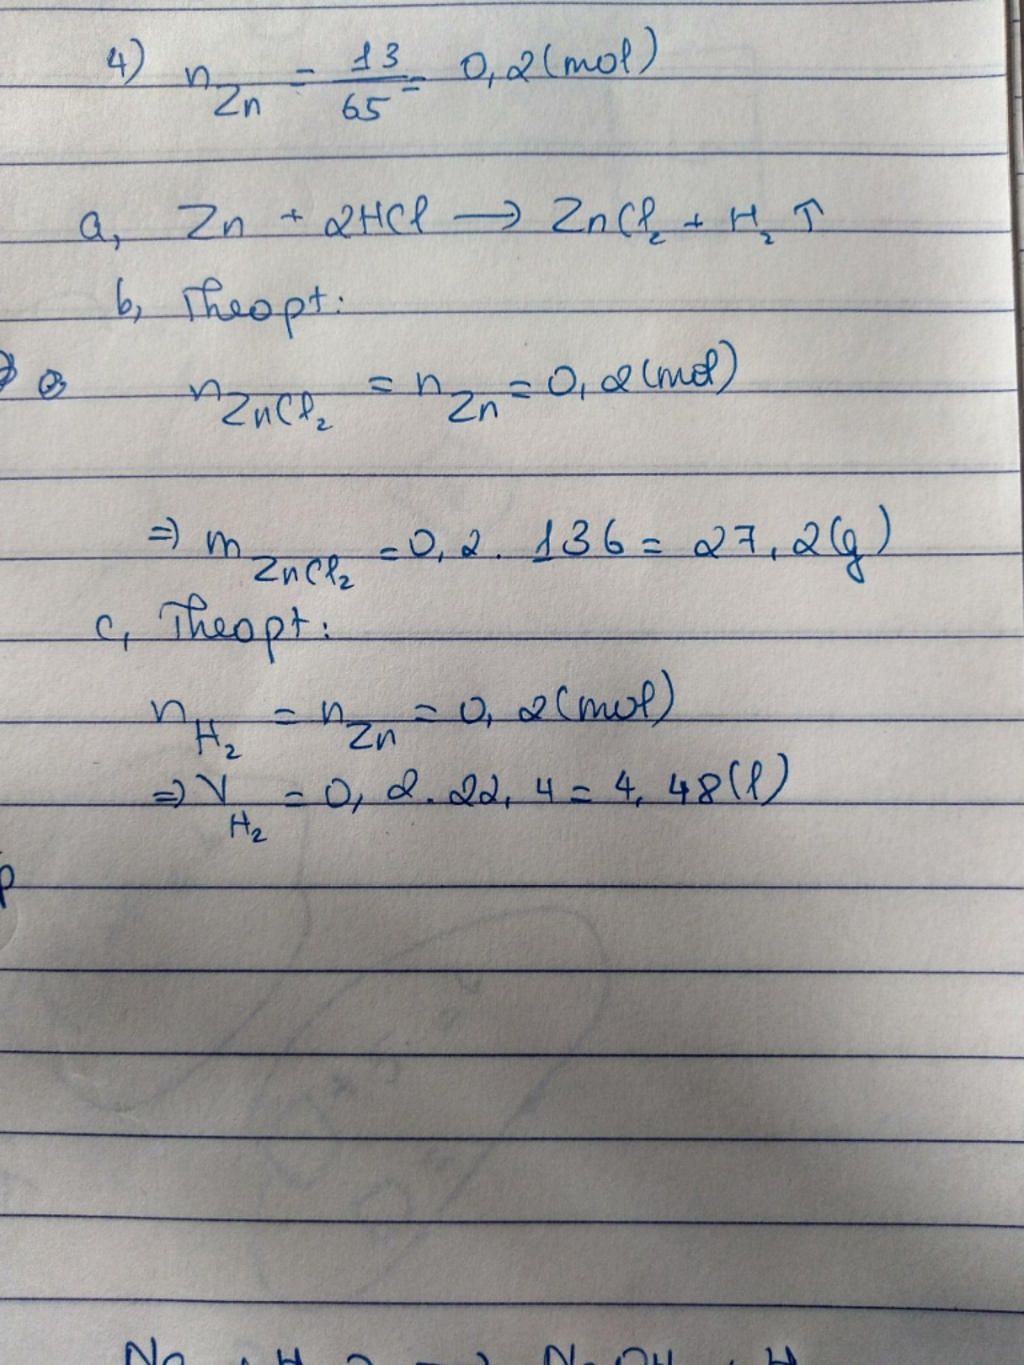 4) n Zn = 13/65 = 0,2 (mol)
a, Zn + 2HCl → ZnCl₂ + H₂ ↑
b, Theo pt:
n ZnCl₂ = n Zn = 0,2 (mol)
=> m ZnCl₂ = 0,2. 136 = 27,2 (g)
c, Theo pt:
n H₂ = n Zn = 0,2 (mol)
=> V H₂ = 0,2. 22,4 = 4,48 (l)